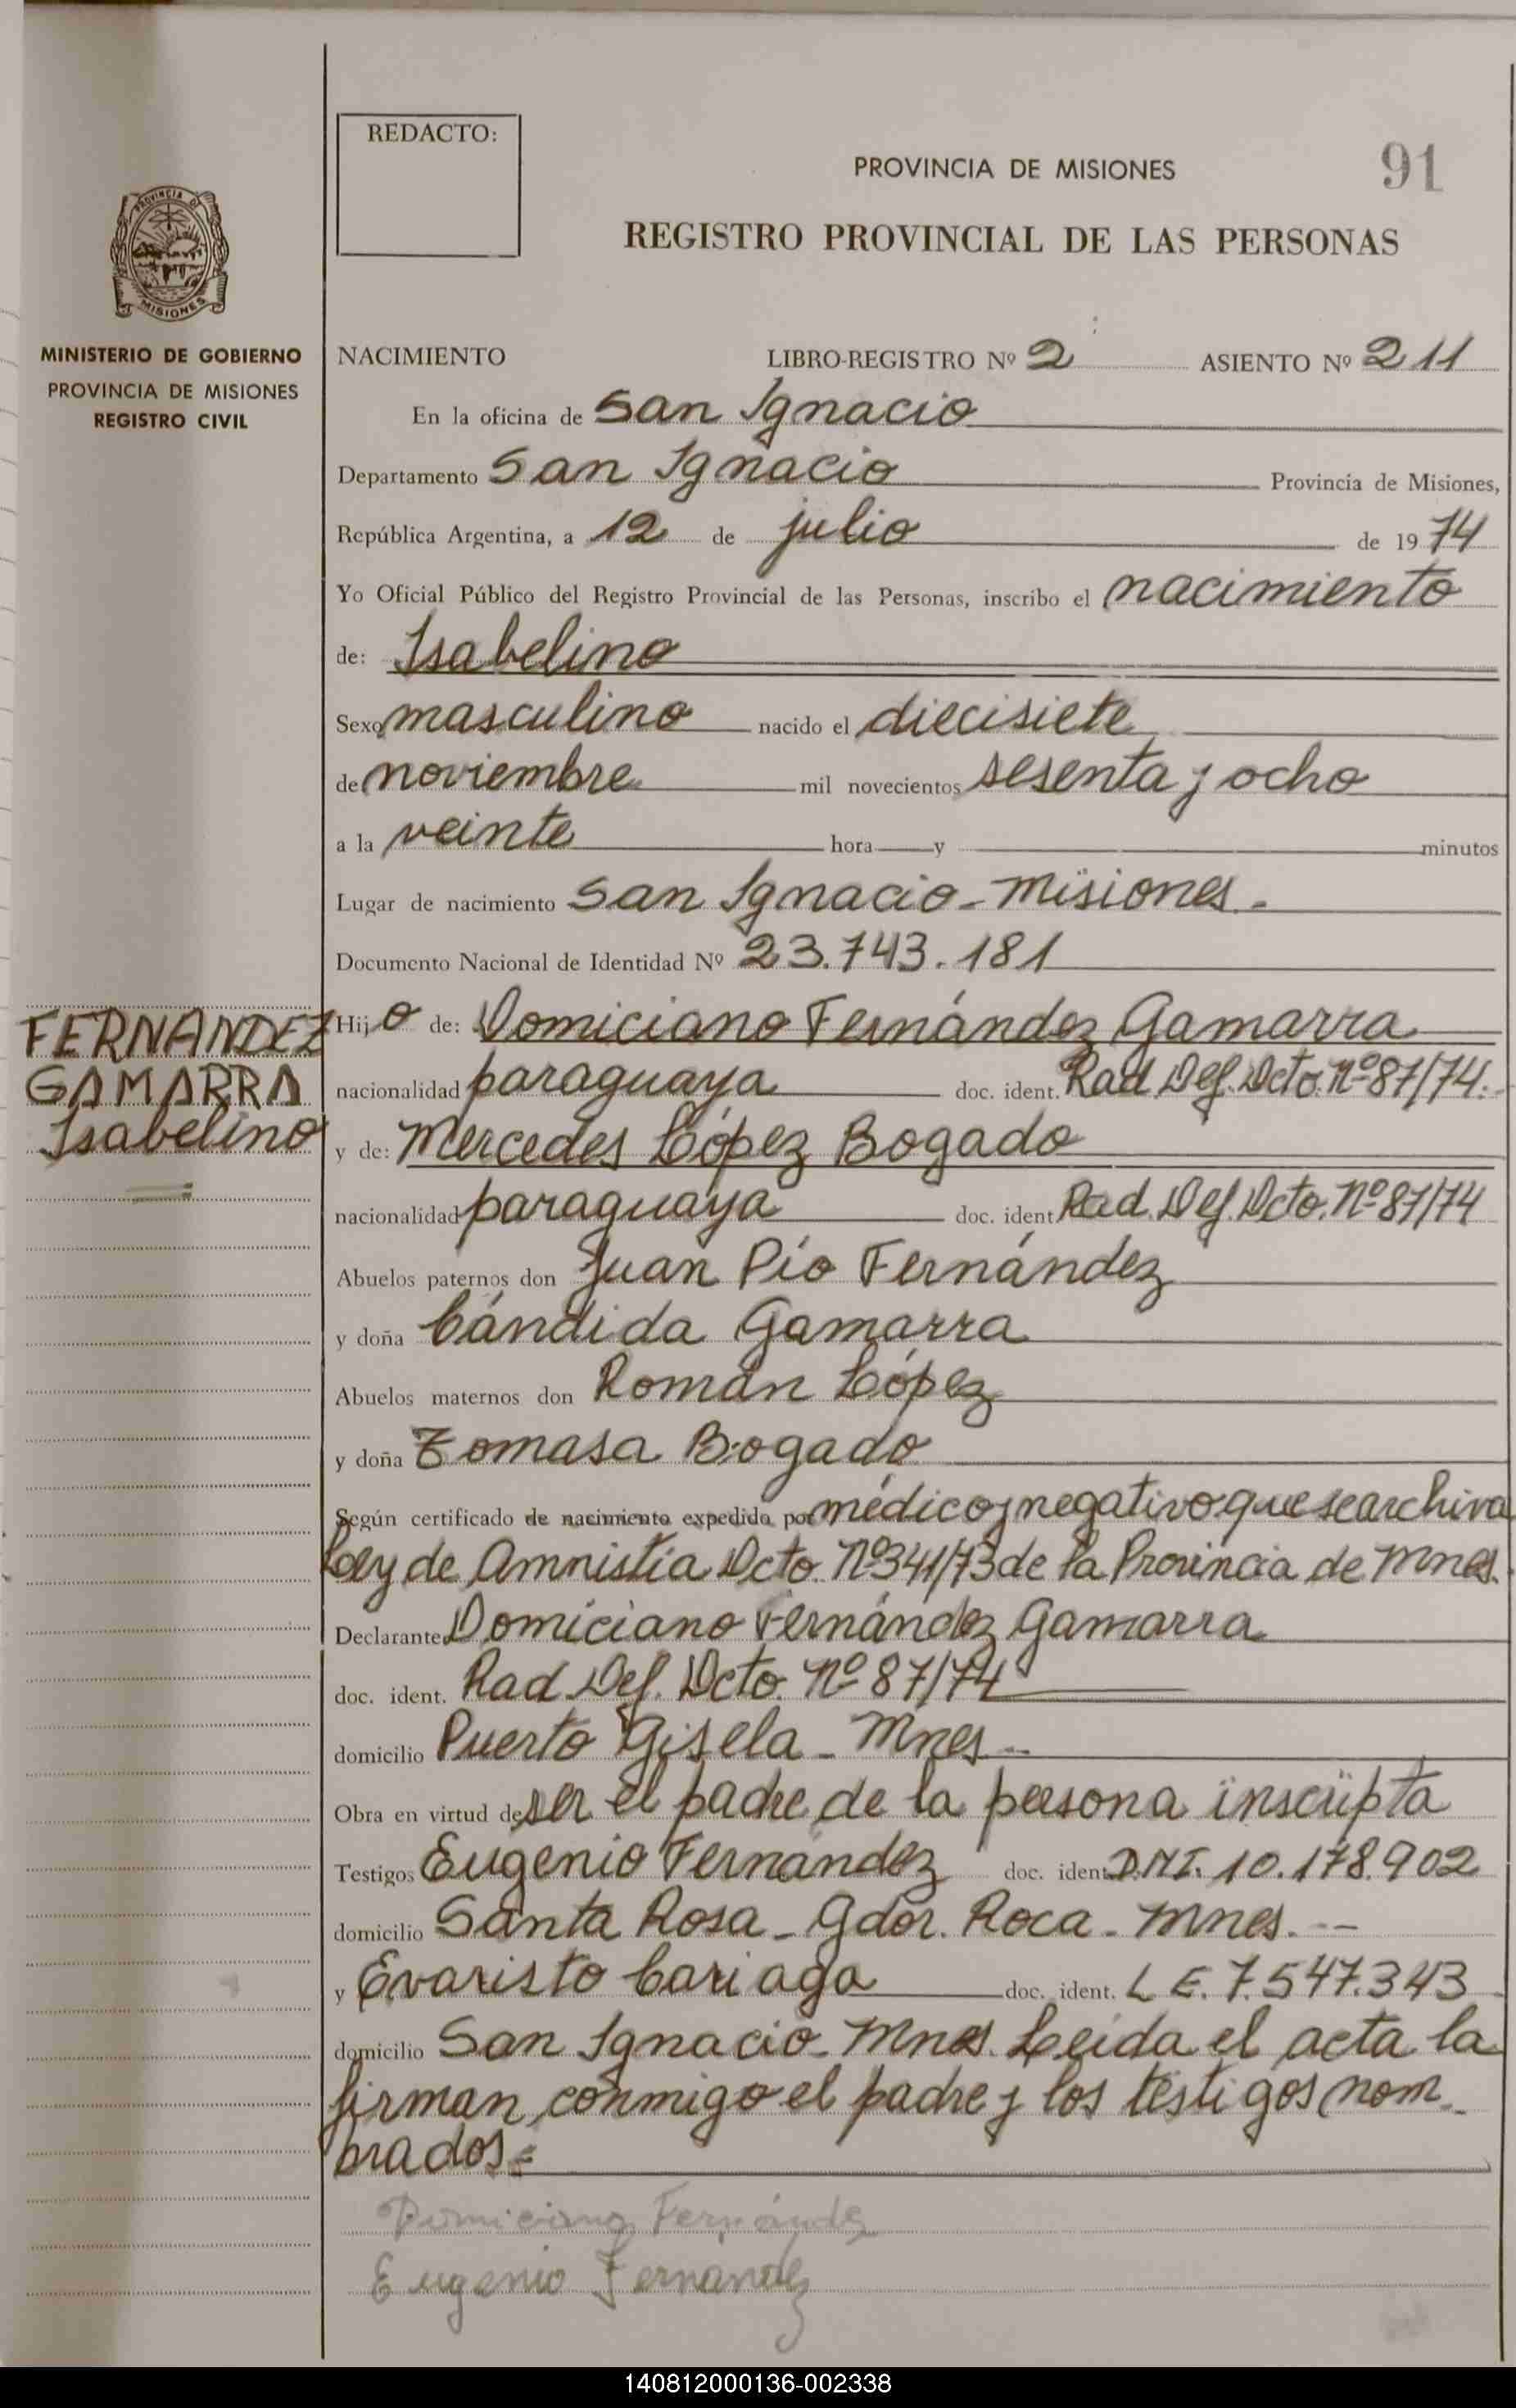 REDACTO:
PROVINCIA DE MISIONES
91
REGISTRO PROVINCIAL DE LAS PERSONAS
PROVINCIA DE
MISIONES
MINISTERIO DE GOBIERNO
PROVINCIA DE MISIONES
REGISTRO CIVIL
NACIMIENTO LIBRO-REGISTRO Nº 2 ASIENTO Nº 211
En la oficina de San Ignacio
Departamento San Ignacio Provincia de Misiones,
República Argentina, a 12 de julio de 19 74
Yo Oficial Público del Registro Provincial de las Personas, inscribo el nacimiento
de: Isabelino
Sexo masculino nacido el diecisiete
de noviembre mil novecientos sesenta y ocho
a la veinte hora y minutos
Lugar de nacimiento San Ignacio - Misiones.-
Documento Nacional de Identidad Nº 23.743.181
FERNANDEZ
GAMARRA
Isabelino
Hijo de: Domiciano Fernández Gamarra
nacionalidad paraguaya doc. ident. Rad. Def. Dcto. Nº 87/74.-
y de: Mercedes López Bogado
nacionalidad paraguaya doc. ident. Rad. Def. Dcto. Nº 87/74
Abuelos paternos don Juan Pío Fernández
y doña Cándida Gamarra
Abuelos maternos don Román López
y doña Tomasa Bogado
Según certificado de nacimiento expedido por médico y negativo que se archiva
Ley de Amnistía Dcto. Nº 341/73 de la Provincia de Mnes.
Declarante Domiciano Fernández Gamarra
doc. ident. Rad. Def. Dcto. Nº 87/74
domicilio Puerto Gisela - Mnes.-
Obra en virtud de ser el padre de la persona inscripta
Testigos Eugenio Fernández doc. ident. D.N.I. 10.178.902
domicilio Santa Rosa - Gdor. Roca - Mnes.--
y Evaristo Cariaga doc. ident. L.E. 7.547.343
domicilio San Ignacio - Mnes. Leída el acta la
firman conmigo el padre y los testigos nom-
brados.=
Domiciano Fernández
Eugenio Fernandez
140812000136-002338